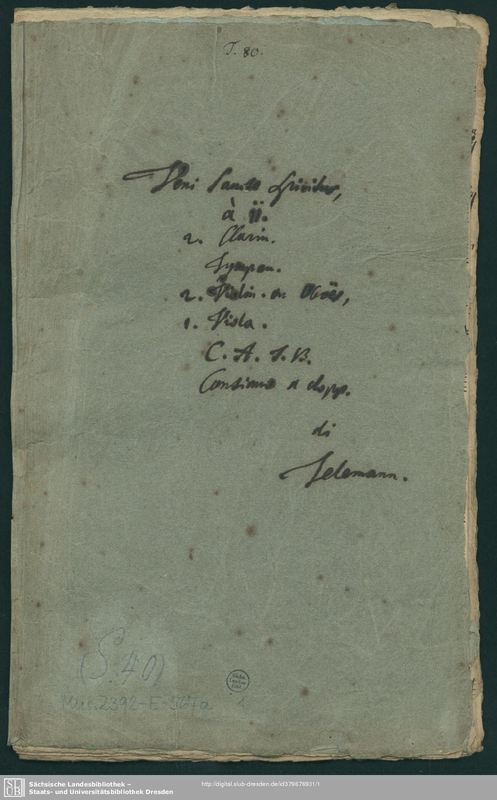 T. 80.
Veni Sancte Spiritus,
à 11.
2. Clarin.
Tympan.
2. Violin. ou Oboës,
1. Viola.
C. A. T. B.
Continuo a dopp.
di
Telemann.
(S. 40)
Mus. 2392-E-
Sächsische Landesbibliothek –
Staats- und Universitätsbibliothek Dresden
http://digital.slub-dresden.de/id379676931/1
SLUB